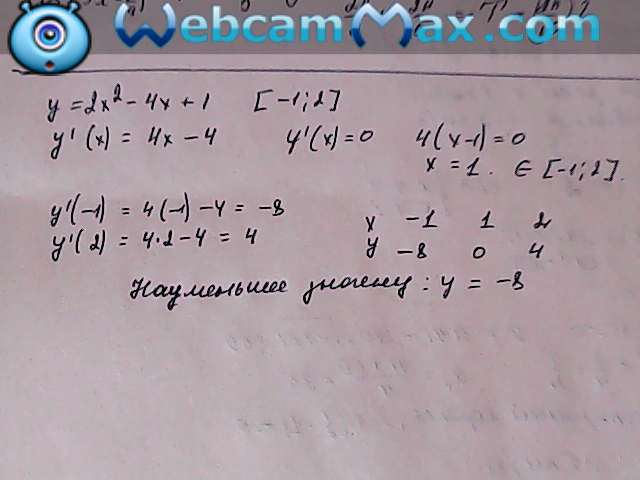 WebcamMax.com
y = 2x² - 4x + 1 [-1; 2]
y'(x) = 4x - 4 y'(x) = 0 4(x-1) = 0
x = 1. ∈ [-1; 2].
y'(-1) = 4(-1) - 4 = -8
y'(2) = 4·2 - 4 = 4
x -1 1 2
y -8 0 4
Наименьшее значен : y = -8